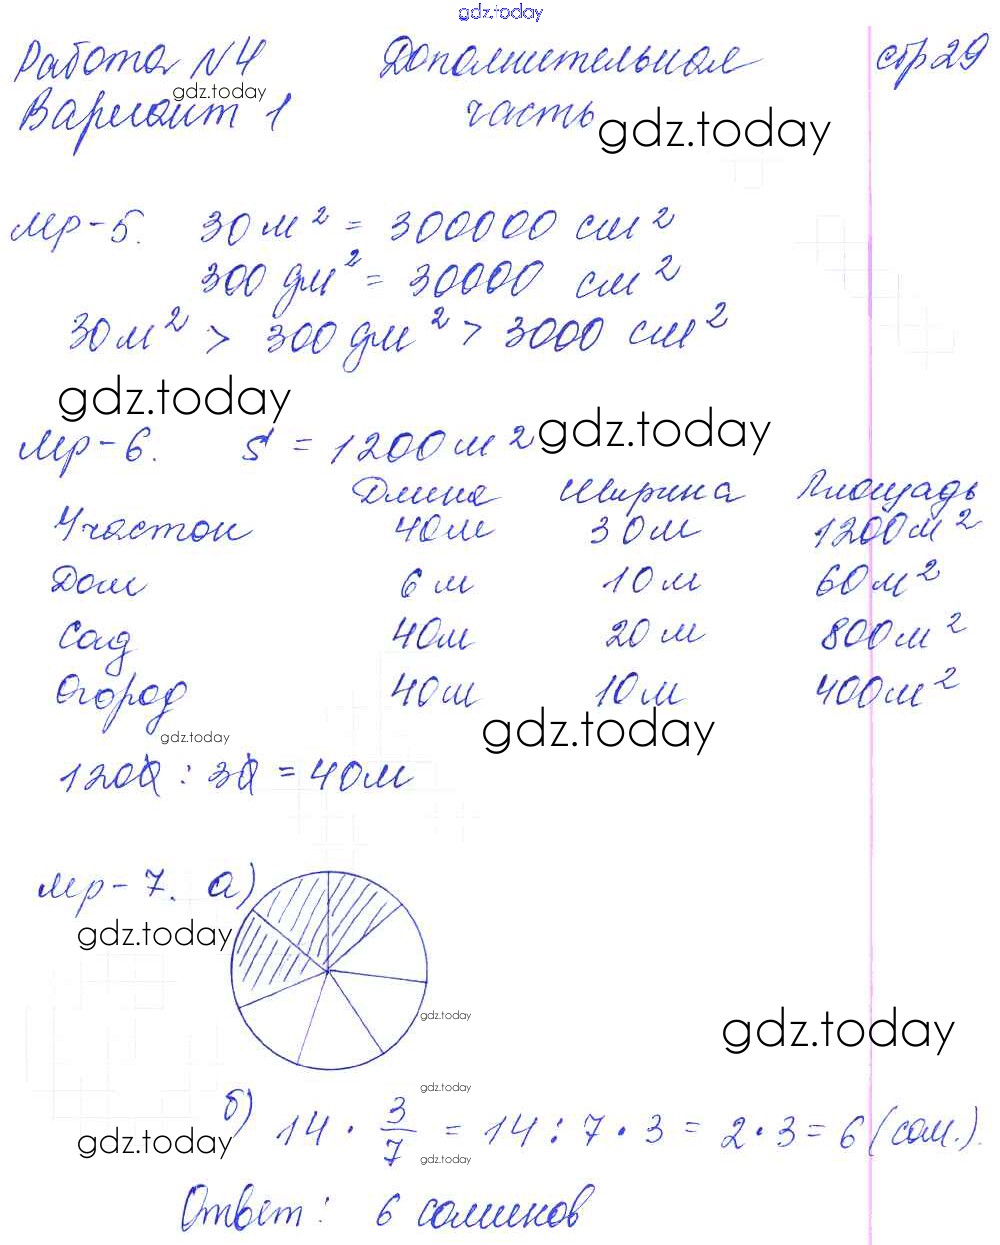 gdz.today
Работа №4 Дополнительная стр 29
gdz.today
Вариант 1 часть
gdz.today
мр-5. 30 м² = 300000 см²
300 дм² = 30000 см²
30 м² > 300 дм² > 3000 см²
gdz.today
мр-6. S = 1200 м²
gdz.today
Длина Ширина Площадь
Участок 40м 30м 1200м²
Дом 6 м 10 м 60 м²
Сад 40м 20 м 800 м²
Огород 40м 10м 400м²
gdz.today
gdz.today
1200 : 30 = 40м
мр-7. а)
gdz.today
gdz.today
gdz.today
gdz.today
б) 14 · 3/7 = 14 : 7 · 3 = 2 · 3 = 6 (сом.).
gdz.today
gdz.today
Ответ: 6 сомиков